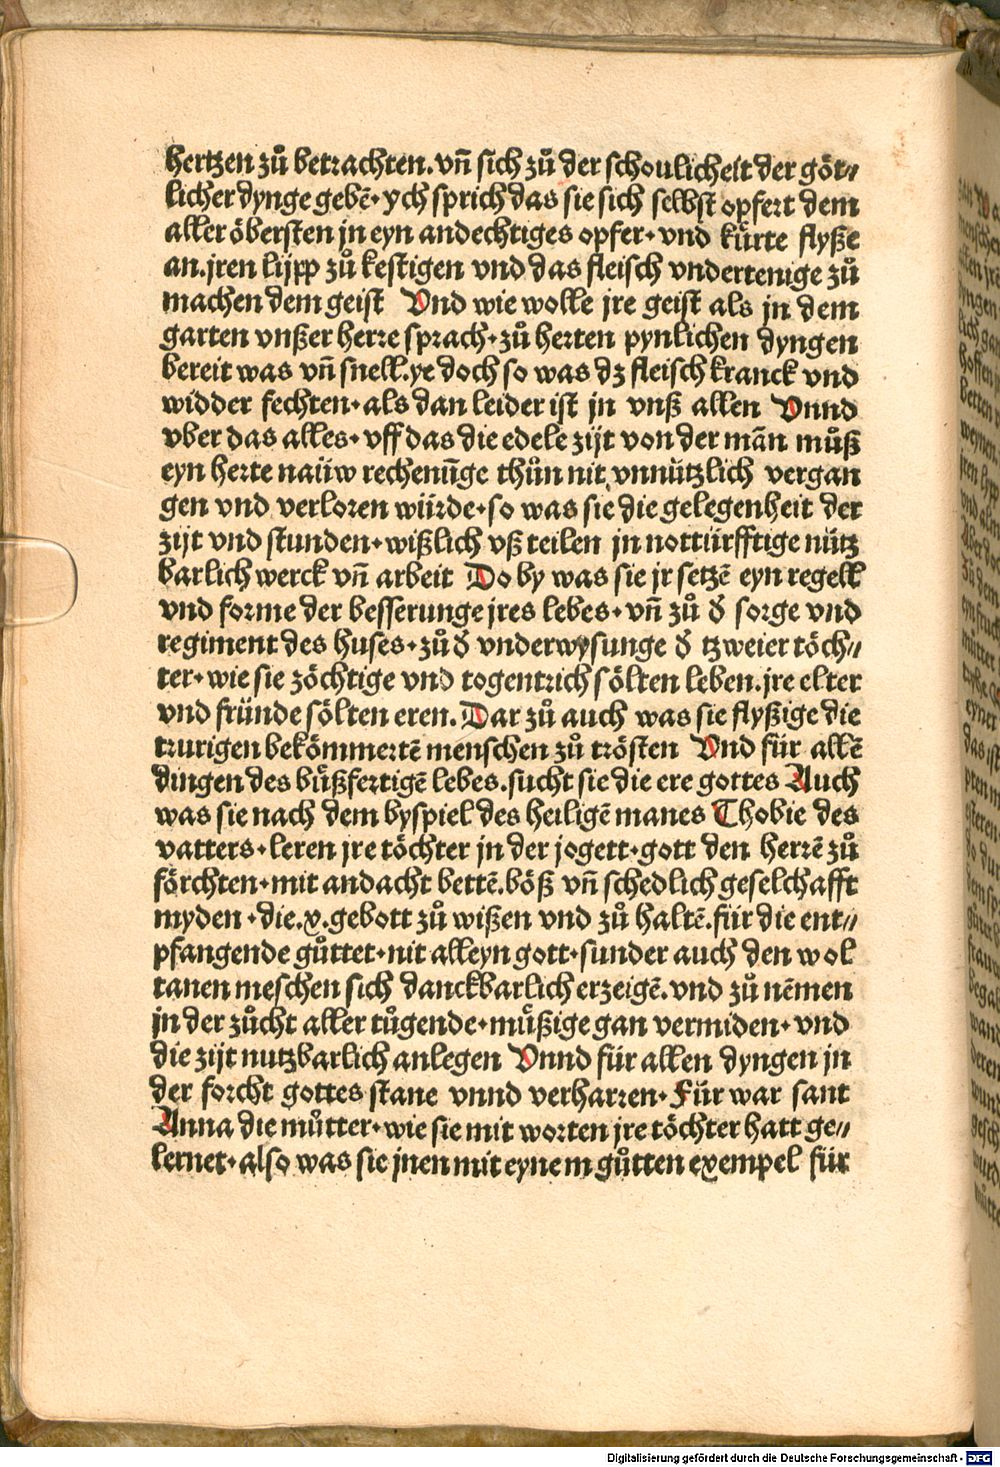 hertzen zuͦ betrachten. vñ sich zuͦ der schoulicheit der göt⸗
licher dynge gebē· ych sprich das sie sich selbst opfert dem
aller öbersten jn eyn andechtiges opfer· vnd kürte flyße
an. jren lijpp zuͦ kestigen vnd das fleisch vndertenige zuͦ
machen dem geist Vnd wie wolle jre geist als jn dem
garten vnßer herre sprach· zuͦ herten pynlichen dyngen
bereit was vñ snell. ye doch so was dz fleisch kranck vnd
widder fechten· als dan leider ist jn vnß allen Vnnd
vber das alles· vff das die edele zijt von der mān muͦß
eyn herte naüw rechenūge thuͦn nit vnnützlich vergan
gen vnd verloren würde· so was sie die gelegenheit der
zijt vnd stunden· wißlich vß teilen jn nottürfftige nütz
barlich werck vñ arbeit Do by was sie jr setzē eyn regell
vnd forme der besserunge jres lebes· vñ zuͦ đ sorge vnd
regiment des huses· zuͦ đ vnderwysunge đ tzweier töch⸗
ter· wie sie zöchtige vnd togentrich sölten leben. jre elter
vnd fründe sölten eren. Dar zuͦ auch was sie flyßige die
trurigen bekömmertē menschen zuͦ trösten Vnd für allē
dingen des büßfertigē lebes. sucht sie die ere gottes Auch
was sie nach dem byspiel des heiligē manes Thobie des
vatters· leren jre töchter jn der jogett· gott den herrē zuͦ
förchten· mit andacht bettē. böß vñ schedlich geselchafft
myden· die .x. gebott zuͦ wißen vnd zuͦ haltē. für die ent⸗
pfangende guͦttet· nit alleyn gott· sunder auch den wol
tanen meschen sich danckbarlich erzeigē. vnd zuͦ nēmen
jn der zuͦcht aller tuͦgende· müßige gan vermiden· vnd
die zijt nutzbarlich anlegen Vnnd für allen dyngen jn
der forcht gottes stane vnnd verharren· Für war sant
Anna die muͦtter· wie sie mit worten jre töchter hatt ge⸗
lernet· also was sie jnen mit eynem guͦtten exempel für
Digitalisierung gefördert durch die Deutsche Forschungsgemeinschaft - DFG